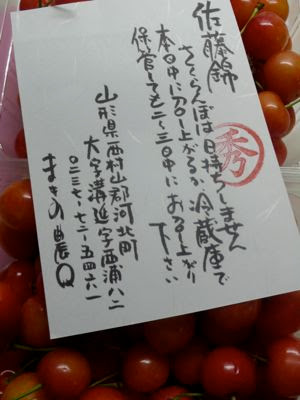 佐藤錦
さくらんぼは日持ちしません
本日中に召し上がるか、冷蔵庫で
保管しても二〜三日中にお召し上がり
下さい
秀
山形県西村山郡河北町
大字溝延字西浦八二
〇二三七-七二-五四六一
まきの農Q